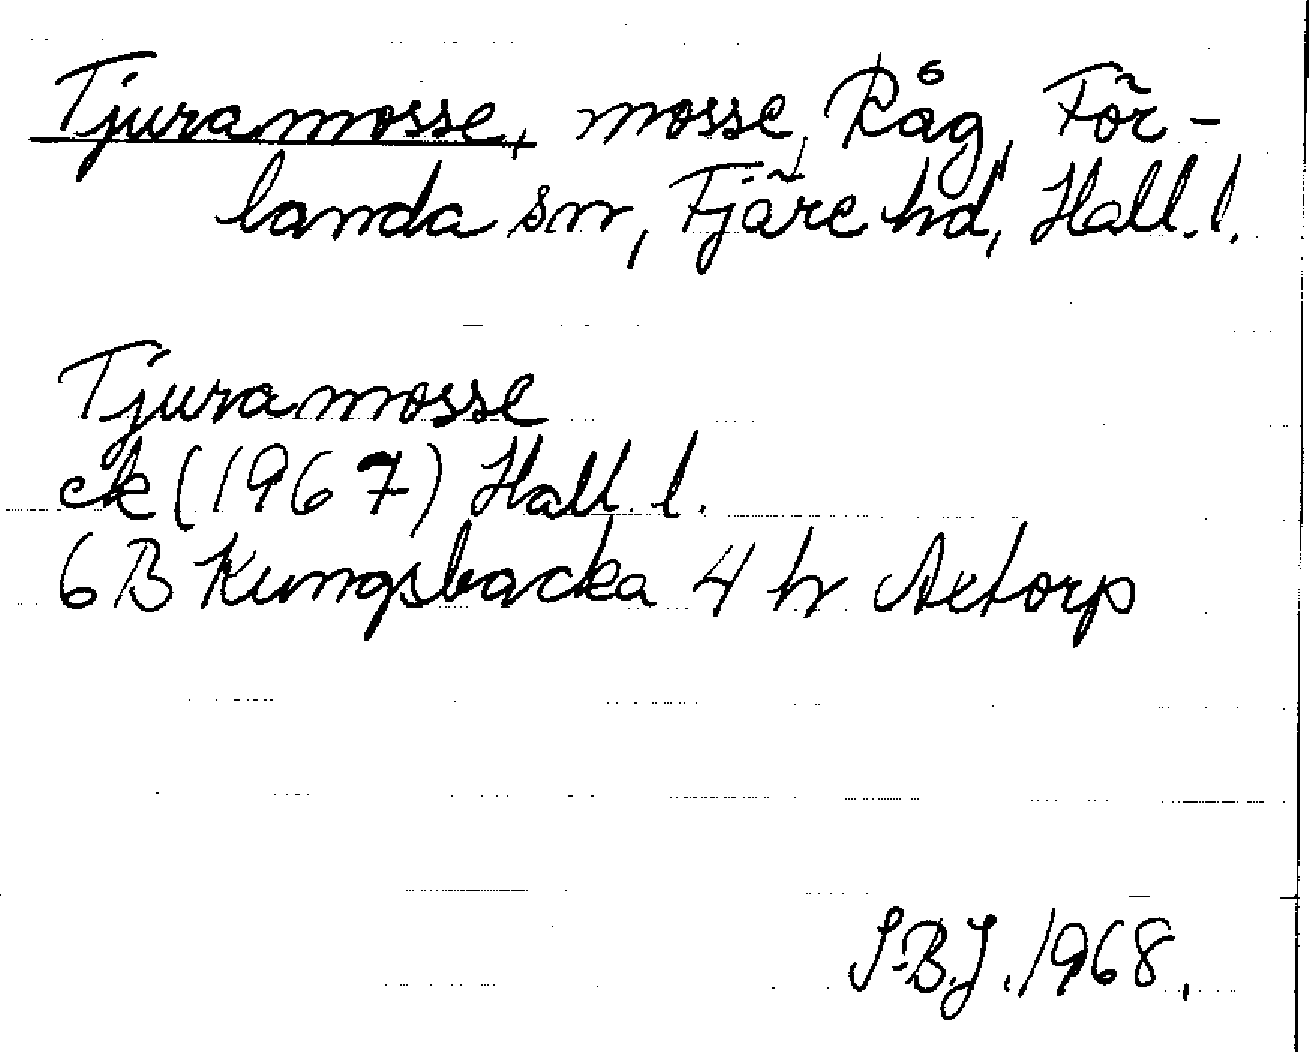 Tjuramosse, mosse, Råg, För-
landa sn, Fjäre hd, Hall.l.
Tjuramosse
ek (1967) Hall. l.
6 B Kungsbacka 4 h Axtorp
S-B.J. 1968.